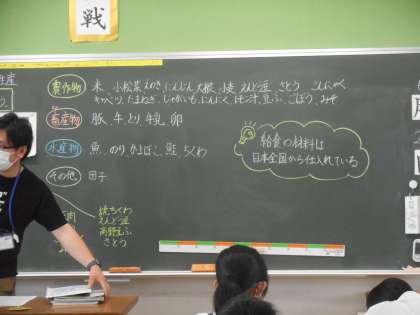 戦
生産
農作物
米、小松菜、えのき、にんじん、大根、小麦、えんどう豆、さとう、こんにゃく
キャベツ、たまねき、じゃがいも、にんにく、レモン汁、豆ふ、ごぼう、みそ
畜産物
豚、牛、とり、牛乳、卵
水産物
魚、のり、かまぼこ、鮭、ちくわ
その他
給食の材料は
日本全国から仕入れている
焼ちくわ
えんどう豆
高野豆ふ
さとう
肉